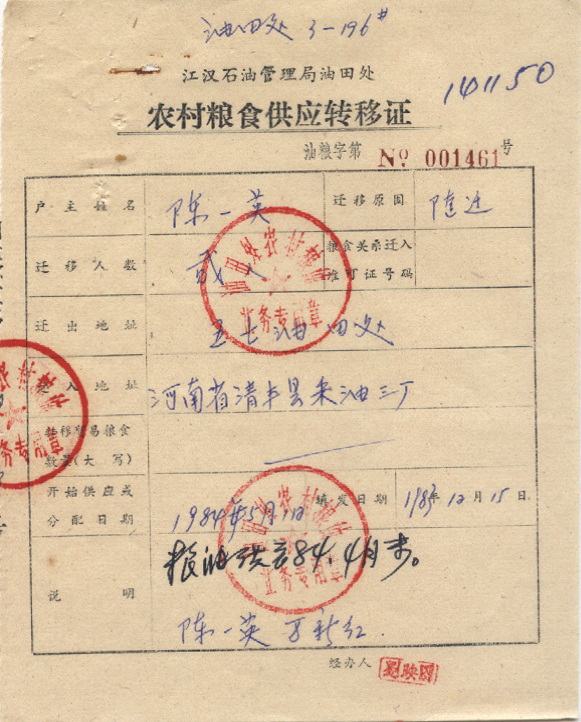 油田处 3-196#
江汉石油管理局油田处
141150
农村粮食供应转移证
油粮字第 № 001461号
户主姓名 陈一英 迁移原因 随迁
迁移人数 贰人 粮食关系迁入准可证号码
迁出地址 五七油田处
迁入地址 河南省清丰县采油三厂
转移贸易粮食数量(大写)
开始供应或分配日期 1984年5月1日 填发日期 1983年12月15日
说明 粮油供应84.4月末。
陈一英 万新红.
经办人
业务专用章
业务专用章
业务专用章